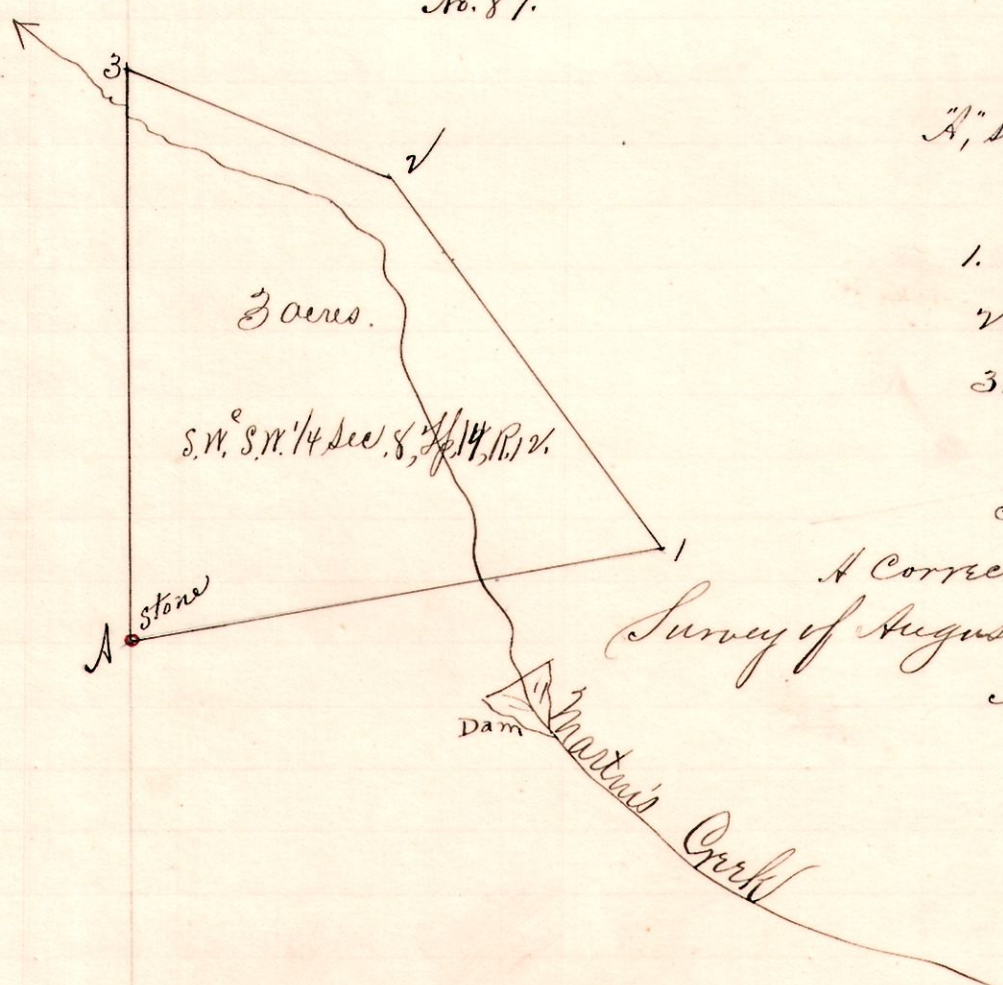 No. 87.
3
2
"A," s
1.
3 acres.
2
3.
S.W.c S.W. 1/4 Sec. 8, Tp. 14, R. 12.
1
A Correc
Stone
Survey of Augus
A
Dam
Martin's Creek